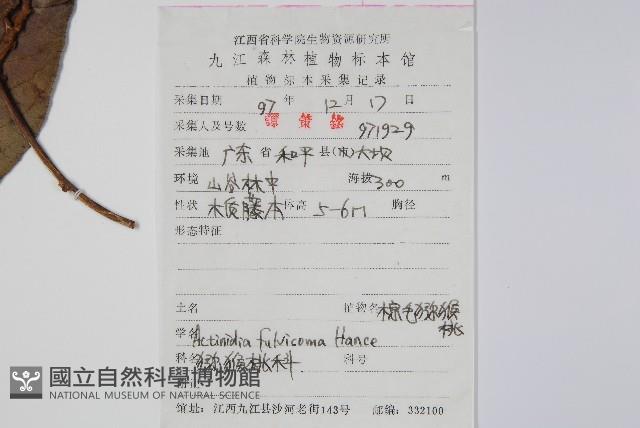 江西省科学院生物资源研究所
九江森林植物标本馆
植物标本采集记录
采集日期 97 年 12 月 17 日
采集人及号数 谭策铭 971929
采集地 广东 省 和平 县(市) 大坝
环境 山谷林中 海拔 300 m
性状 木质藤本 体高 5-6m 胸径
形态特征
土名 植物名 棕毛猕猴桃
学名 Actinidia fulvicoma Hance
科名 猕猴桃科 科号
國立自然科學博物館
NATIONAL MUSEUM OF NATURAL SCIENCE
馆址:江西九江县沙河老街143号 邮编:332100